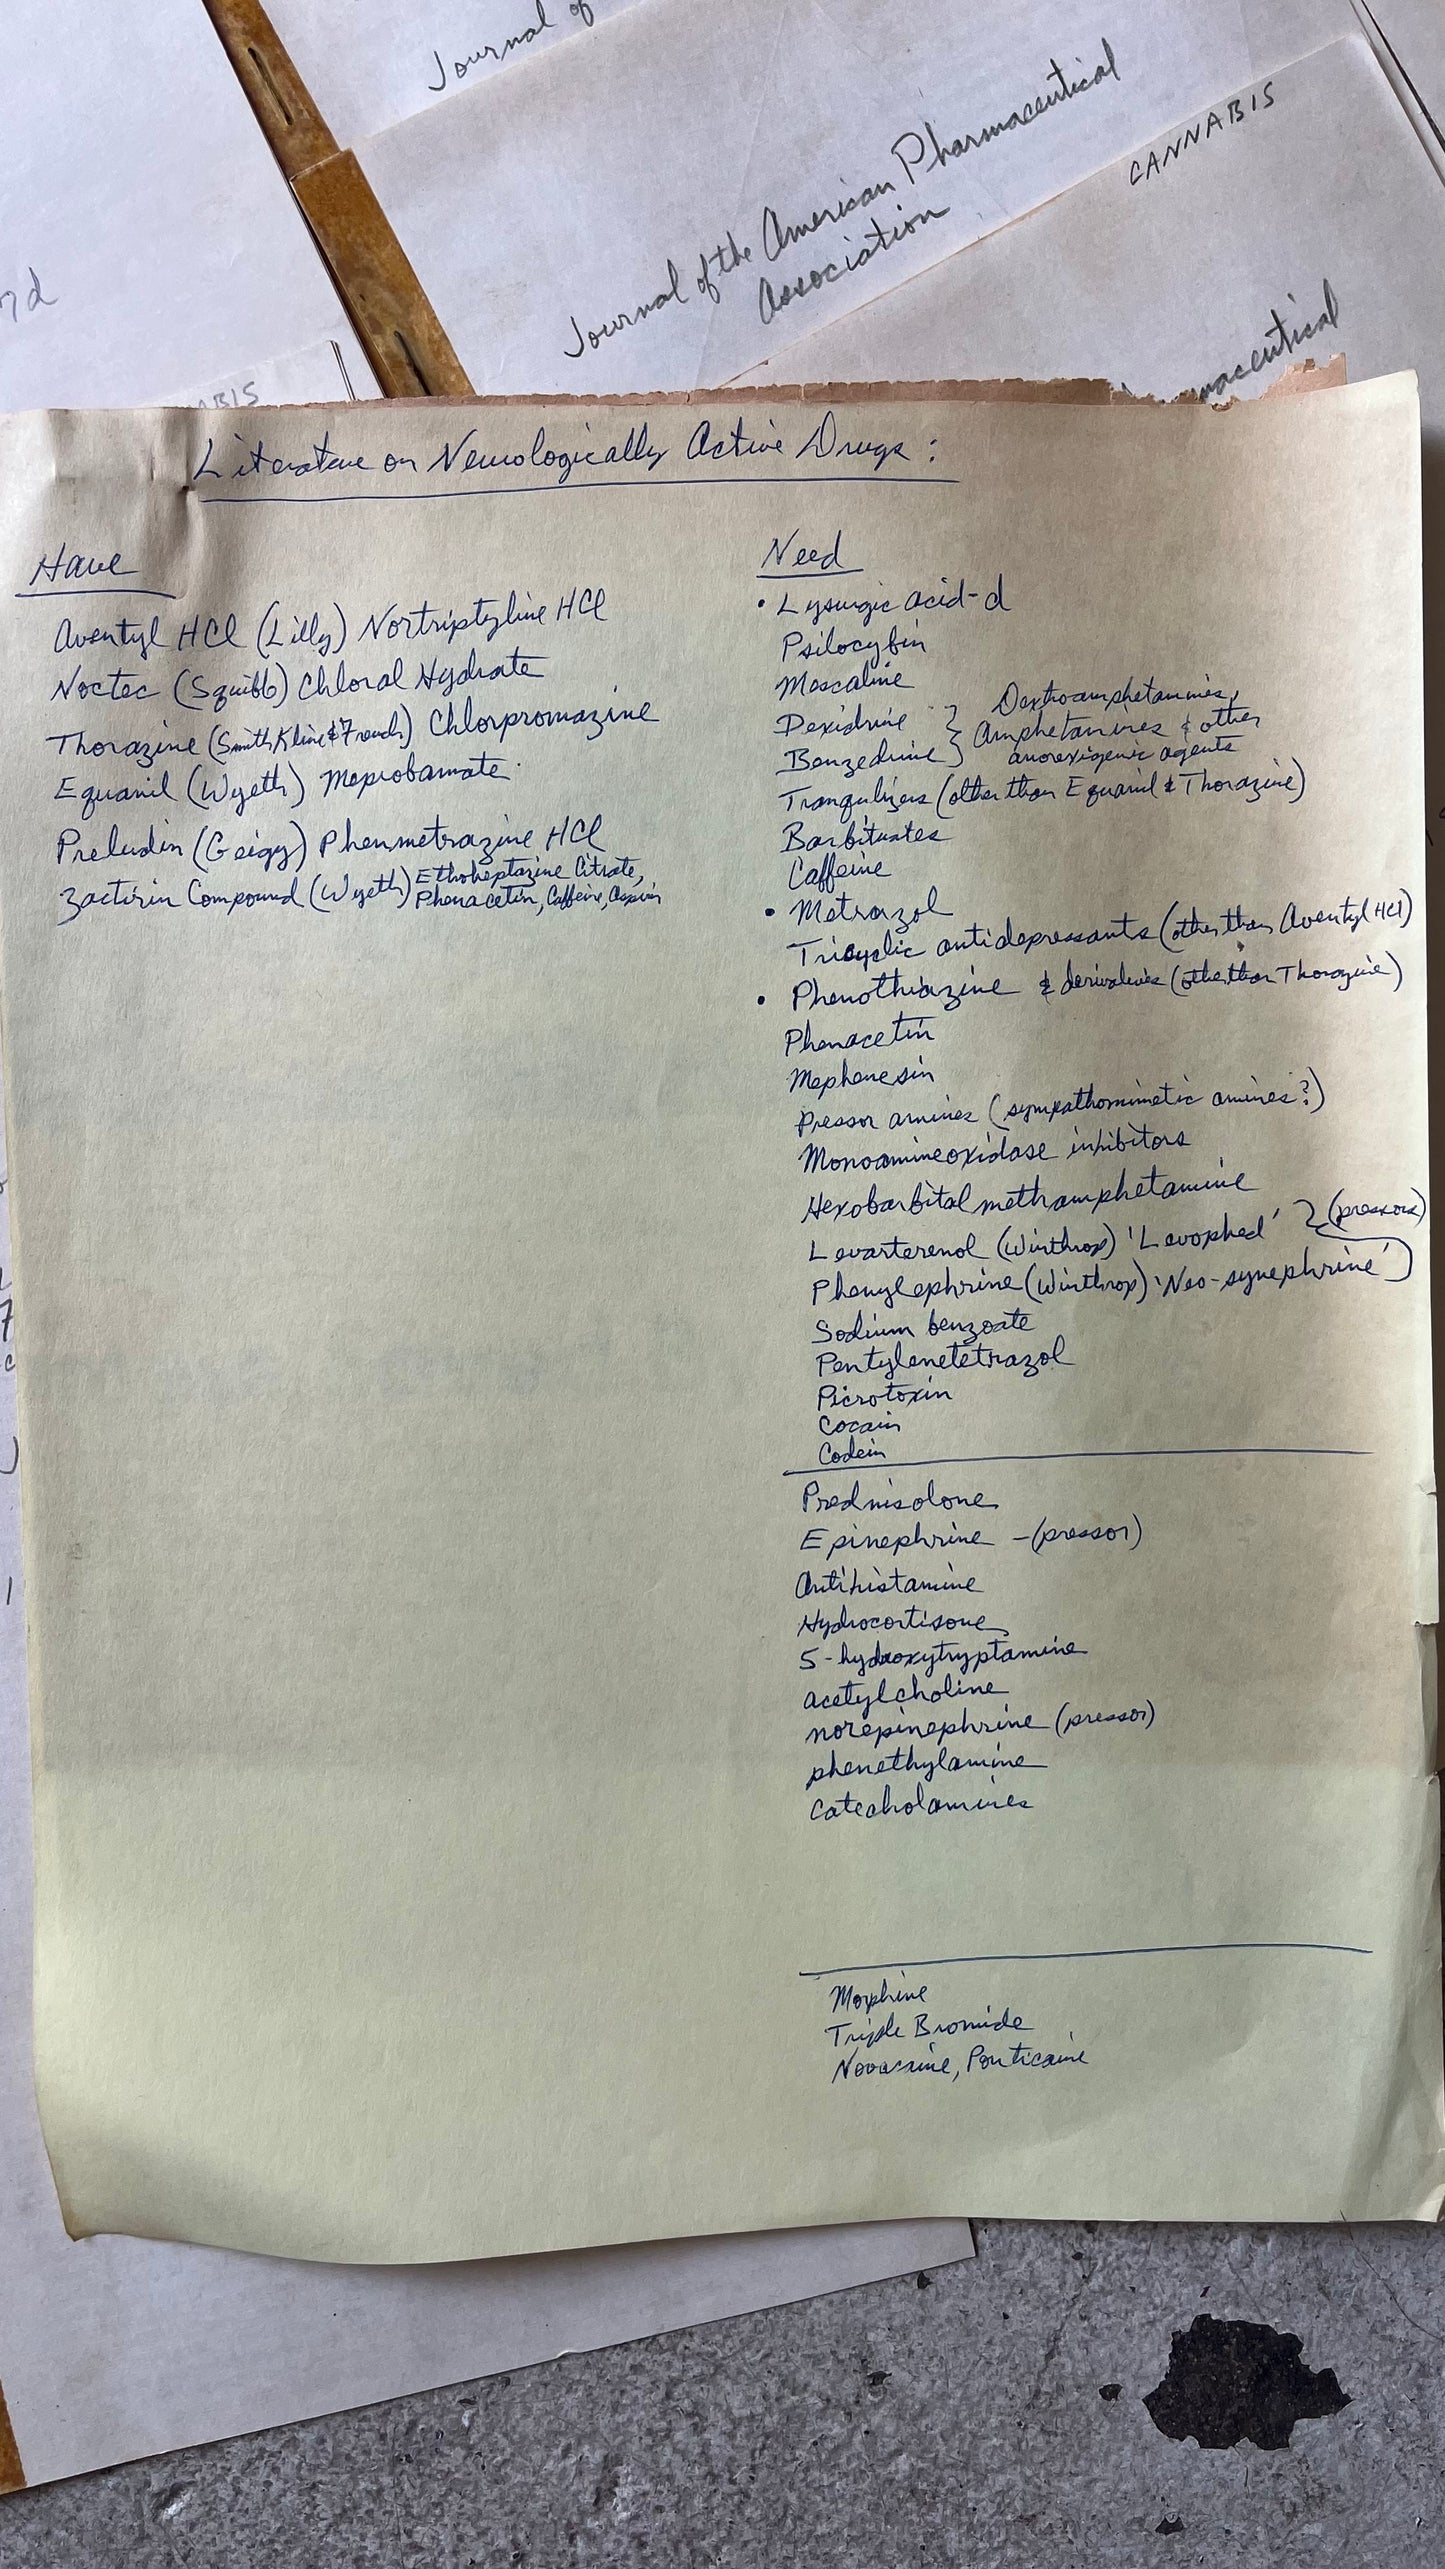 Journal of
Journal of the American Pharmaceutical
Association
CANNABIS
maceutical
ABIS
Literature on Neurologically Active Drugs:
Have
Aventyl HCl (Lilly) Nortriptyline HCl
Noctec (Squibb) Chloral Hydrate
Thorazine (Smith Kline & French) Chlorpromazine
Equanil (Wyeth) Meprobamate
Preludin (Geigy) Phenmetrazine HCl
Zactirin Compound (Wyeth) Ethoheptazine Citrate,
Phenacetin, Caffeine, Aspirin
Need
• Lysurgic acid-d
Psilocybin
Mescaline
Dexidrine } Dextroamphetamines,
Benzedrine } Amphetamines & other
anorexigenic agents
Tranqulizers (other than Equanil & Thorazine)
Barbituates
Caffeine
• Metrazol
Tricyclic antidepressants (other than Aventyl HCl)
• Phenothiazine & derivatives (other than Thorazine)
Phenacetin
Mephenesin
Pressor amines (sympathomimetic amines?)
Monoamineoxidase inhibitors
Hexobarbital methamphetamine
Levarterenol (Winthrop) 'Levophed' } (pressors)
Phenylephrine (Winthrop) 'Neo-synephrine'
Sodium benzoate
Pentylenetetrazol
Picrotoxin
Cocain
Codein
Prednisolone
Epinephrine -(pressor)
Antihistamine
Hydrocortisone
5-hydroxytryptamine
acetylcholine
norepinephrine (pressor)
phenethylamine
Catecholamines
Morphine
Triple Bromide
Novocaine, Ponticaine